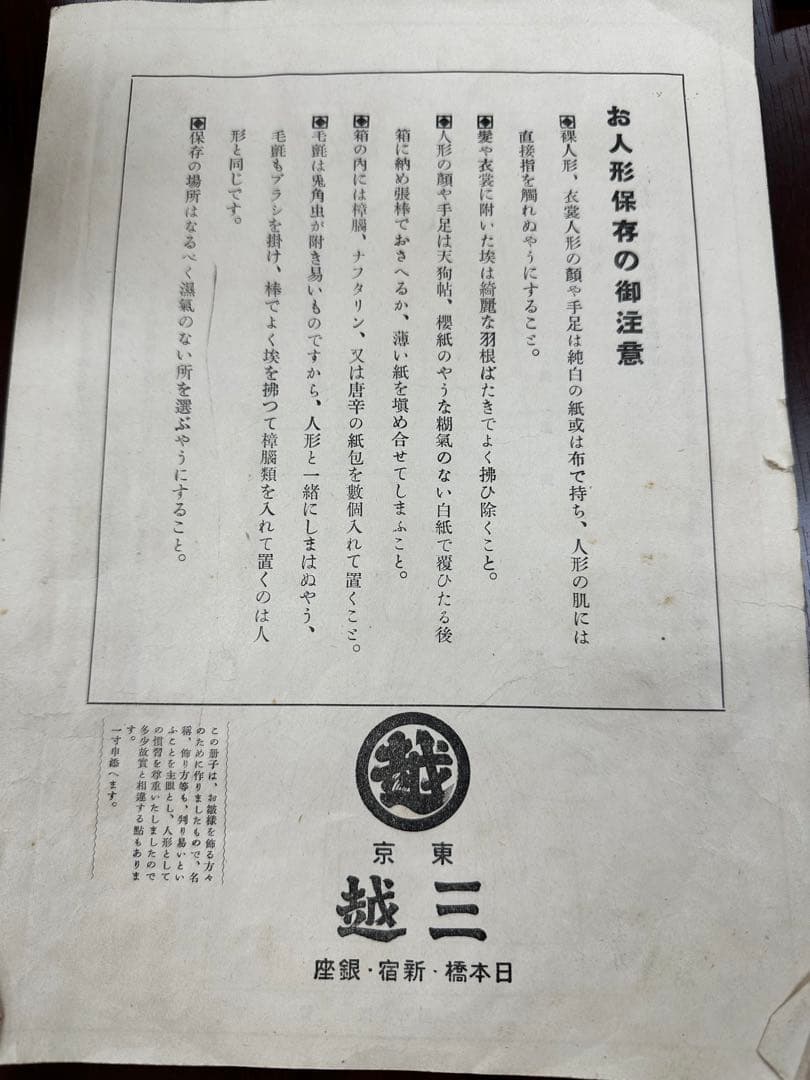 お人形保存の御注意
◈裸人形、衣裳人形の顏や手足は純白の紙或は布で持ち、人形の肌には
直接指を觸れぬやうにすること。
◈髮や衣裳に附いた埃は綺麗な羽根ばたきでよく拂ひ除くこと。
◈人形の顏や手足は天狗帖、櫻紙のやうな糊氣のない白紙で覆ひたる後
箱に納め張棒でおさへるか、薄い紙を塡め合せてしまふこと。
◈箱の內には樟腦、ナフタリン、又は唐辛の紙包を數個入れて置くこと。
◈毛氈は兎角虫が附き易いものですから、人形と一緖にしまはぬやう、
毛氈もブラシを掛け、棒でよく埃を拂つて樟腦類を入れて置くのは人
形と同じです。
◈保存の場所はなるべく濕氣のない所を選ぶやうにすること。
越
東京
三越
日本橋・新宿・銀座
この册子は、お雛樣を飾る方々
のために作りましたもので、名
稱、飾り方等も、判り易いとい
ふことを主眼とし、人形として
の慣習を尊重いたしましたので
多少故實と相違する點もありま
す。
一寸申添へます。